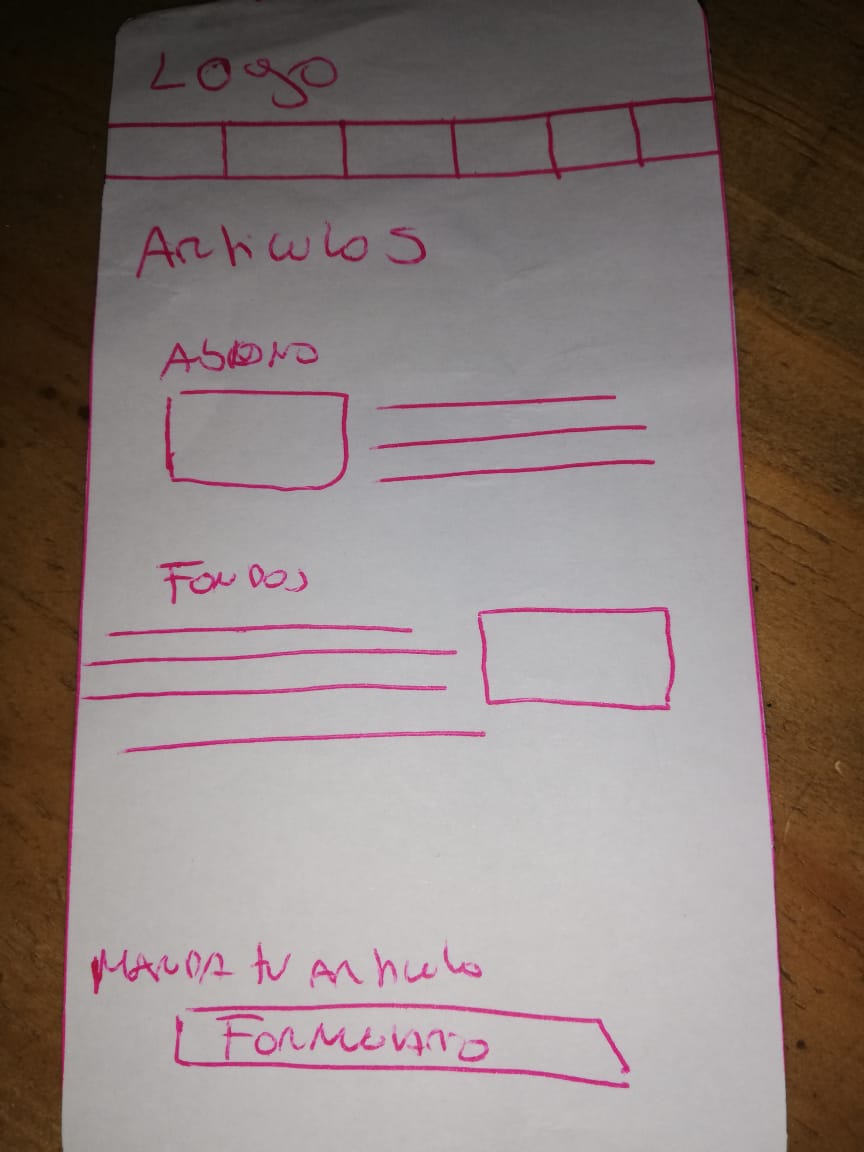 Logo
Articulos
Abono
Fondos
Manda tu articulo
Formulario